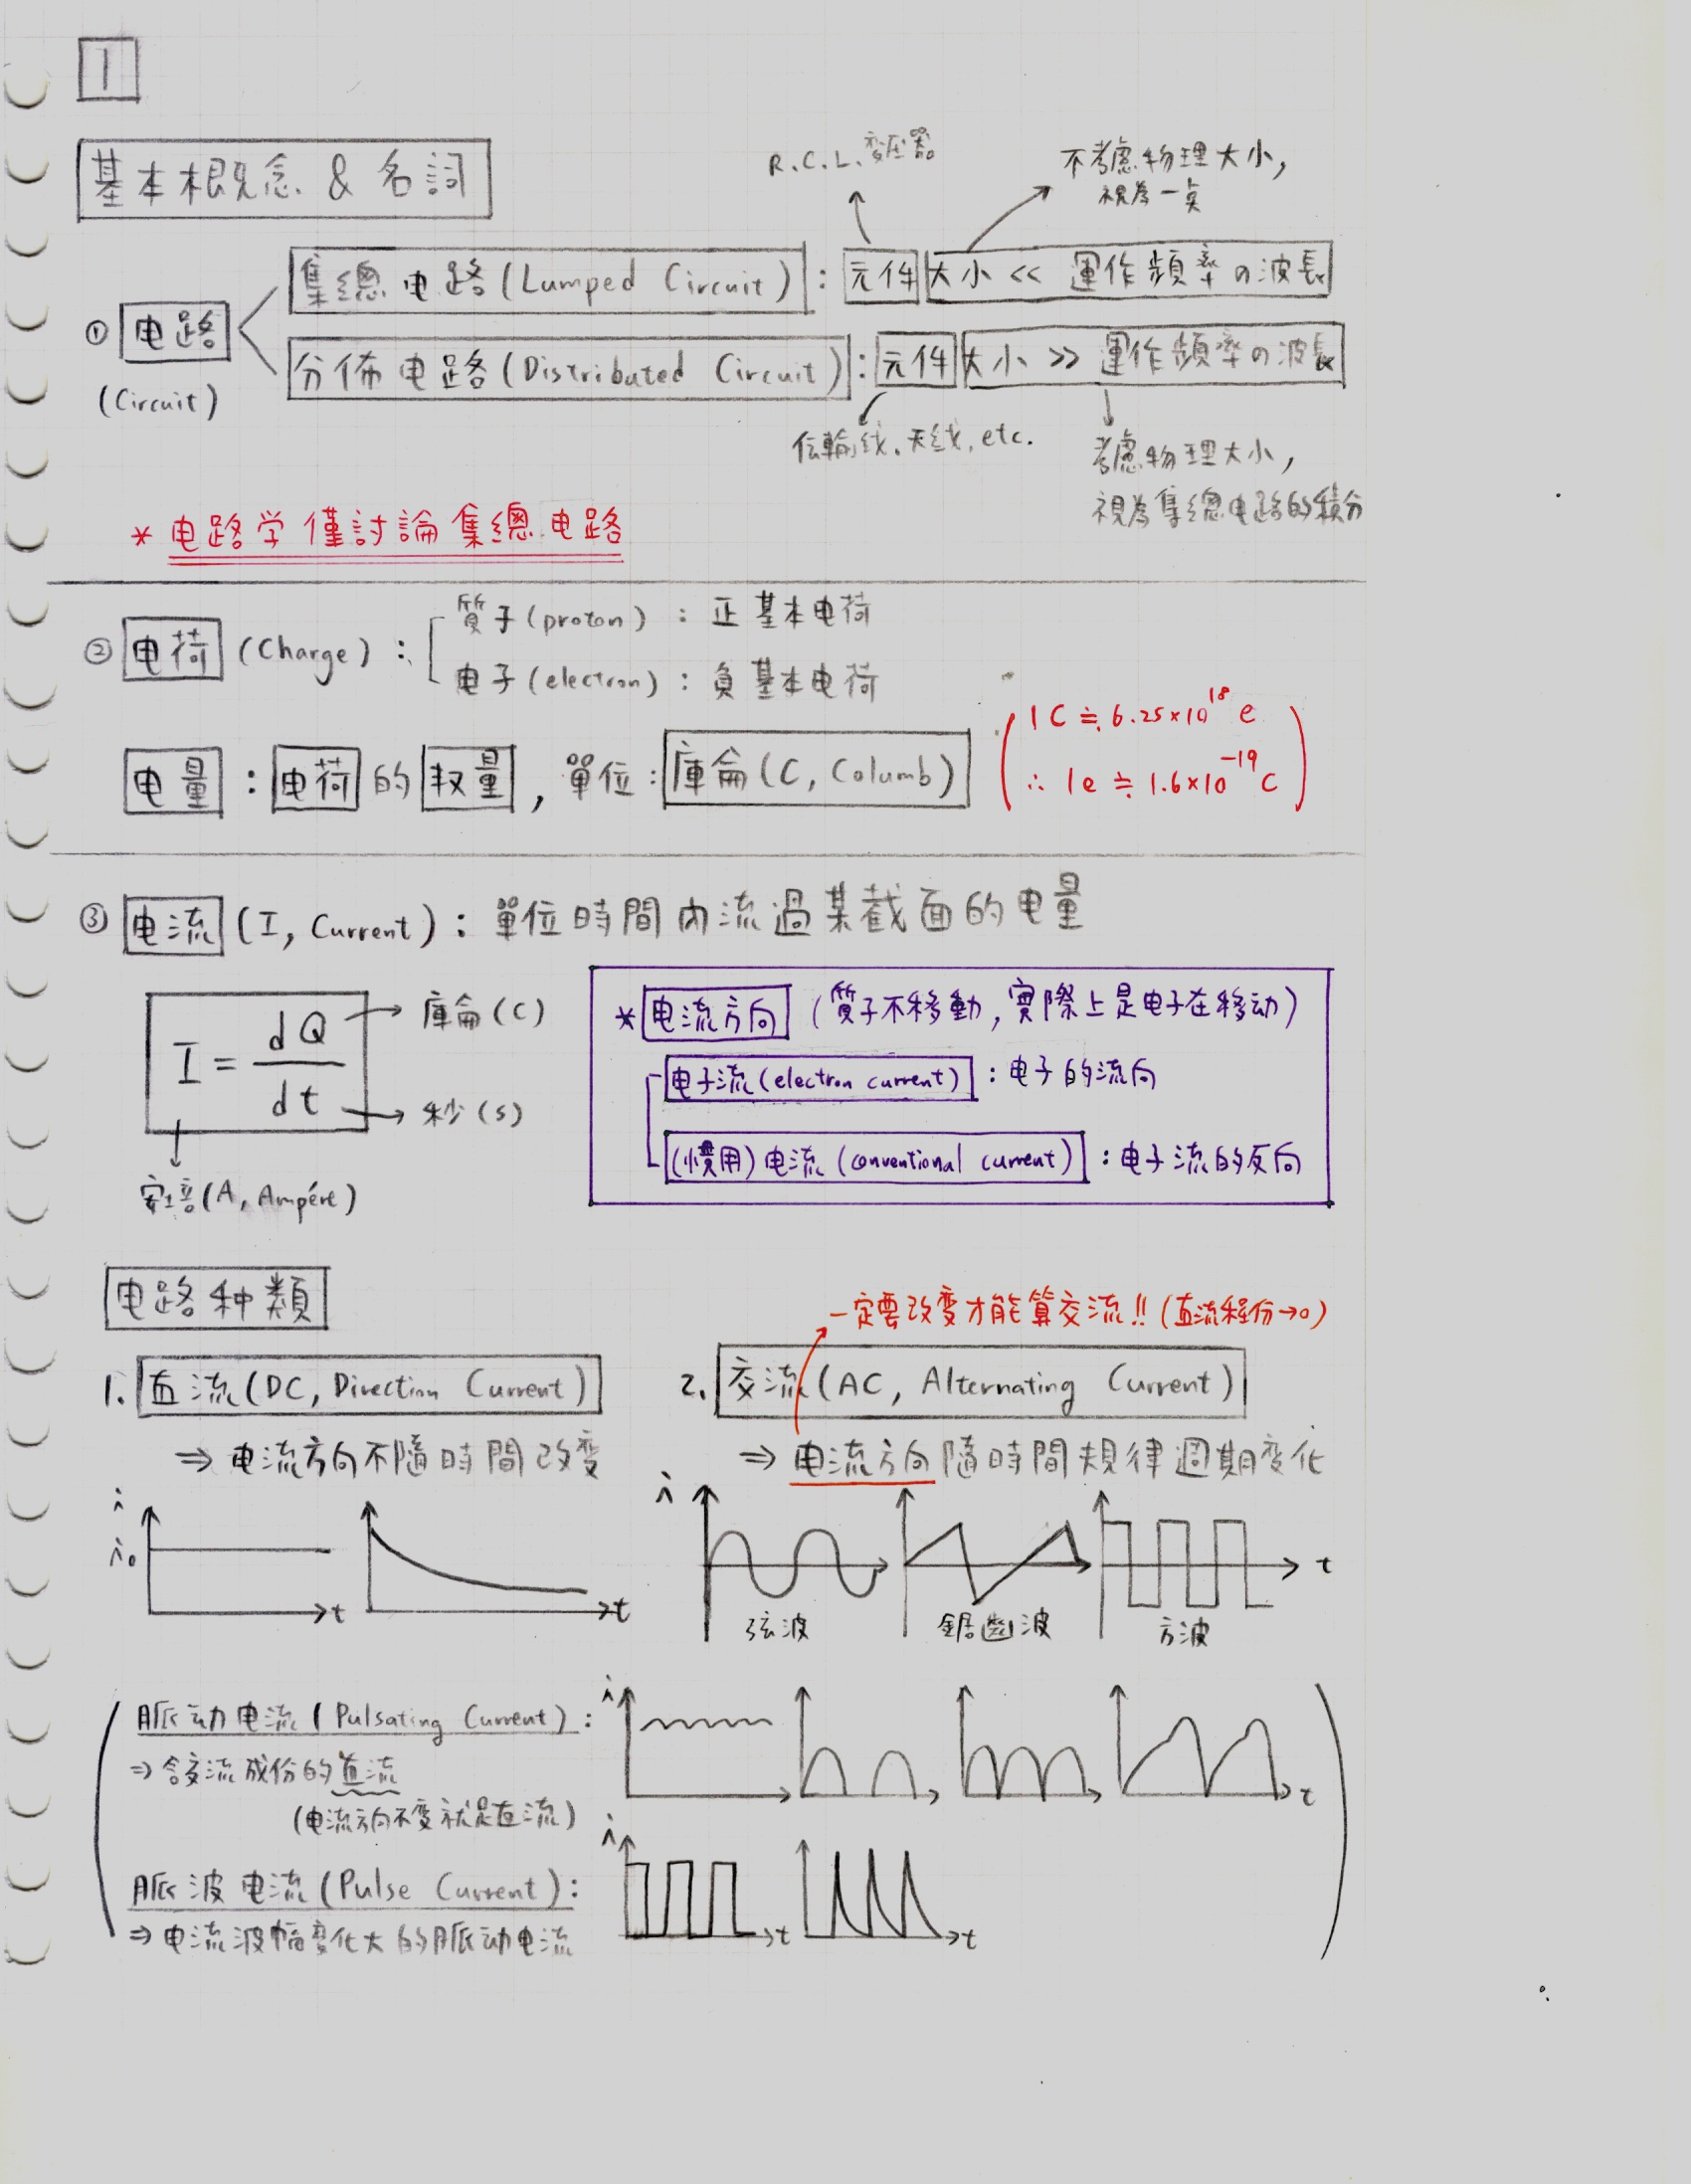 1
基本概念 & 名詞
R.C.L.变压器
不考慮物理大小,
視為一点
① 电路 (Circuit)
集總电路(Lumped Circuit) : 元件大小 << 運作頻率の波長
分佈电路(Distributed Circuit) : 元件大小 >> 運作頻率の波長
伝輸线.天线,etc.
考慮物理大小,
視為集總电路的積分
* 电路学僅討論集總电路
② 电荷 (Charge) :
質子(proton) : 正基本电荷
电子(electron) : 負基本电荷
电量 : 电荷的数量, 單位 : 庫侖(C, Columb)
1C ≒ 6.25×10^18 e
∴ 1e ≒ 1.6×10^-19 C
③ 电流 (I, Current) : 單位時間內流過某截面的电量
I = dQ/dt
庫侖(C)
秒(s)
安培(A, Ampére)
* 电流方向 (質子不移動,實際上是电子在移动)
电子流(electron current) : 电子的流向
(慣用)电流 (conventional current) : 电子流的反向
电路种類
一定要改变才能算交流!! (直流成份→0)
1. 直流(DC, Direction Current)
⇒ 电流方向不隨時間改变
i
i₀
t
t
2. 交流(AC, Alternating Current)
⇒ 电流方向隨時間規律週期变化
i
t
弦波
鋸齒波
方波
脈动电流(Pulsating Current) :
⇒ 含交流成份的直流
(电流方向不变就是直流)
i
t
脈波电流(Pulse Current) :
⇒ 电流波幅变化大的脈动电流
i
t
t